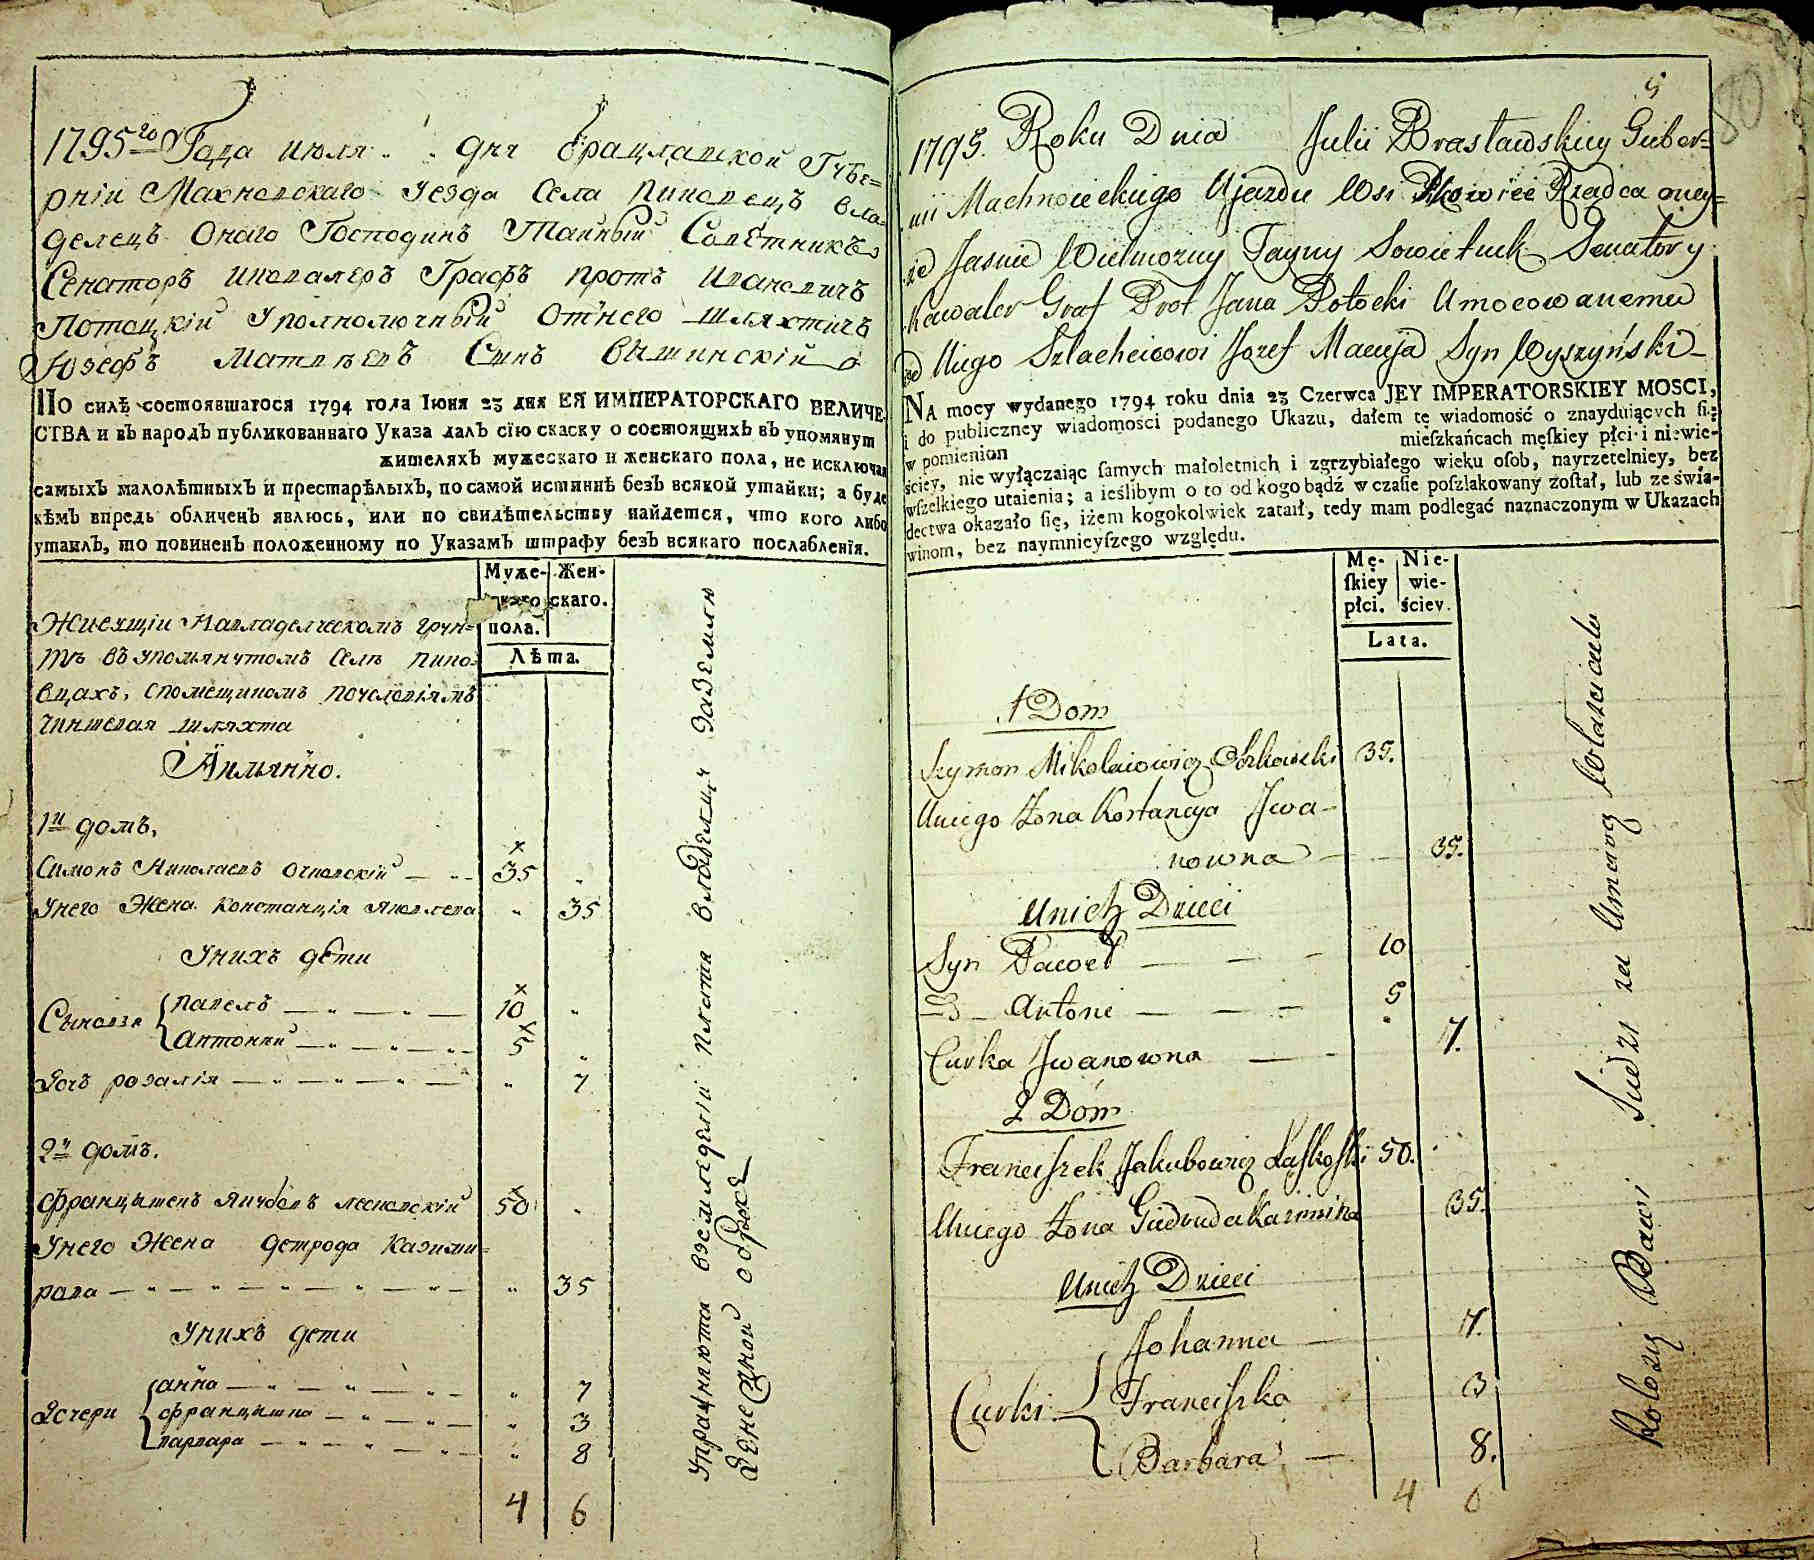 1795го Года июля дня Брацлавской Губе=
рнiи Махновскаго уезда Села Пиковецъ вла=
делецъ Онаго Господинъ Тайный Советникъ
Сенаторъ икавалеръ Графъ Протъ Ивановичъ
Потоцкiй уполномочный отнего шляхтичъ
Юзефъ Матвѣевъ Сынъ Вышинскiй
ПО силѣ состоявшагося 1794 года Iюня 23 дня ЕЯ ИМПЕРАТОРСКАГО ВЕЛИЧЕ-
СТВА и въ народъ публикованнаго Указа далъ сiю скаску о состоящихъ въ упомянут
жителяхъ мужескаго и женскаго пола, не исключая
самыхъ малолѣтныхъ и престарѣлыхъ, по самой истиннѣ безъ всякой утайки; а буде
кѣмъ впредь обличенъ явлюсь, или по свидѣтельству найдется, что кого либо
утаилъ, то повиненъ положенному по Указамъ штрафу безъ всякаго послабленiя.
Муже- Жен-
скаго скаго.
пола.
Лѣта.
Живущiи Навладелческомъ грун=
тѣ въ упомянутомъ Селѣ Пико=
вцахъ, спомещикомъ поусловiямъ
чиншевая шляхта
Имянно.
1й домъ.
Симонъ Николаевъ 35
Унего Жена Констанцiя Яковлева 35
Унихъ дети
Сыновья Павелъ 10
Антонiй 5
Дочъ розалiя 7
2й домъ.
Францышекъ Якубовъ Лесковскiй 50
Унего Жена Гетрода Казими=
рова 35
Унихъ дети
Дочери анна 7
францышка 3
варвара 8
4 6
Упражняются вземледелiи плотя владелцу заземлю
Денежной оброкъ
5
80
1795. Roku Dnia Julii Brasławskiey Guber=
nii Machnowieckiego Ujazdu Wsi Pikowiec Rządca oney=
że Jasnie Wielmozny Tayny Sowietnik Senator y
Kawaler Graf Prot Jana Potocki Umocowanemu
od Niego Szlachcicowi Jozef Macieja Syn Wyszyński
NA mocy wydanego 1794 roku dnia 23 Czerwca JEY IMPERATORSKIEY MOSCI,
i do publiczney wiadomości podanego Ukazu, dałem tę wiadomość o znayduiących ſię
w pomienion mieſzkańcach męſkiey płci i niewie-
ściey, nie wyłączaiąc ſamych małoletnich i zgrzybiałego wieku oſob, nayrzetelniey, bez
wſzelkiego utaienia; a ieślibym o to od kogo bądź w czaſie poſzlakowany został, lub ze świa-
dectwa okazało się, iżem kogokolwiek zataił, tedy mam podlegać naznaczonym w Ukazach
winom, bez naymnieyſzego względu.
Mę- Nie-
ſkiey wie-
płci. ściey.
Lata.
1 Dom
Szymon Mikolaiowicz 35.
Uniego Żona Kostancya Jwa-
nowna 35.
Unich Dzieci
Syn Paweł 10
Antoni 5
Curka Jwanowna 7.
2 Dom
Franciszek Jakubowicz Laſkoſki 50.
Uniego Żona Giedruda Kazimira 35.
Unich Dzieci
Curki Johanna 7.
Franciszka 3
Barbara 8.
4 6